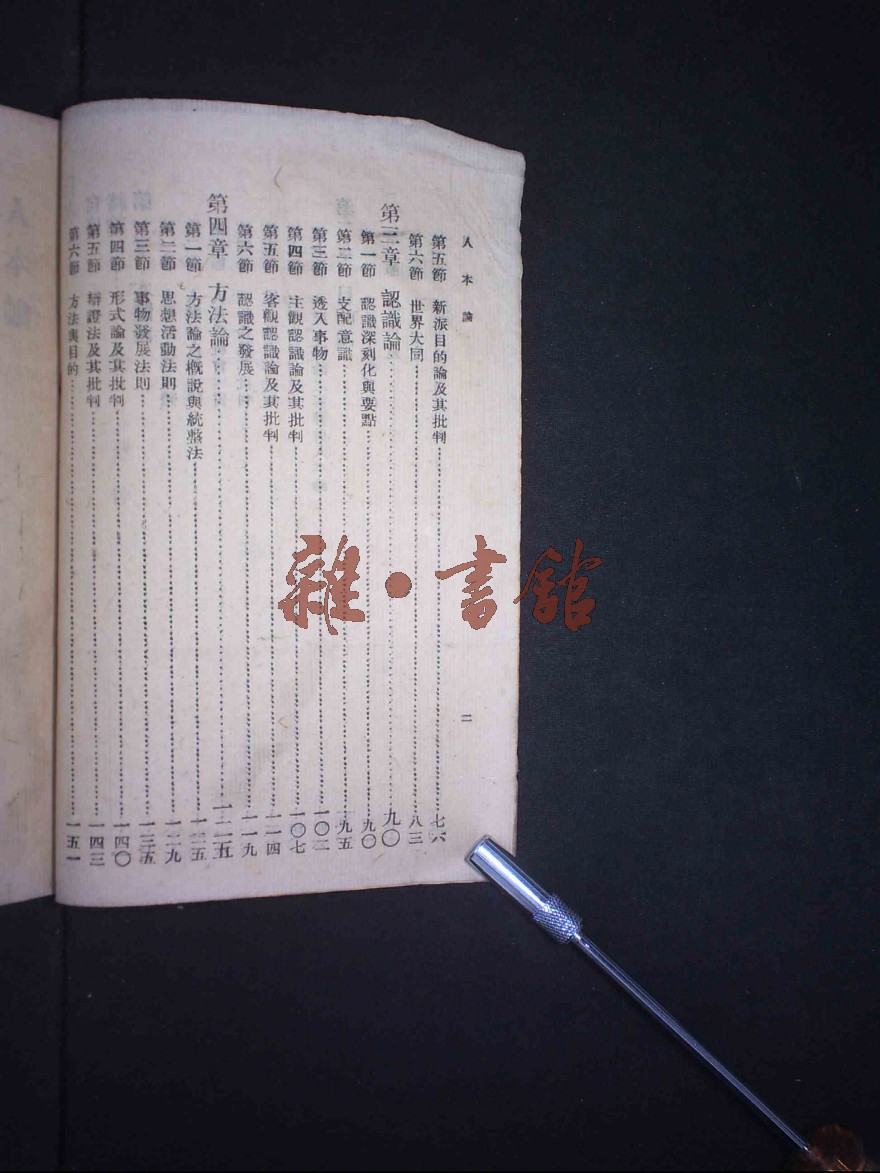 人本論
二
第五節 新派目的論及其批判……七六
第六節 世界大同……八三
第三章 認識論……九〇
第一節 認識深刻化與要點……九〇
第二節 支配意識……九五
第三節 透入事物……一〇二
第四節 主觀認識論及其批判……一〇七
第五節 客觀認識論及其批判……一一四
第六節 認識之發展……一一九
第四章 方法論……一二五
第一節 方法論之概說與統整法……一二五
第二節 思想活動法則……一二九
第三節 事物發展法則……一三五
第四節 形式論及其批判……一四〇
第五節 辯證法及其批判……一四三
第六節 方法與目的……一五一
雜·書館